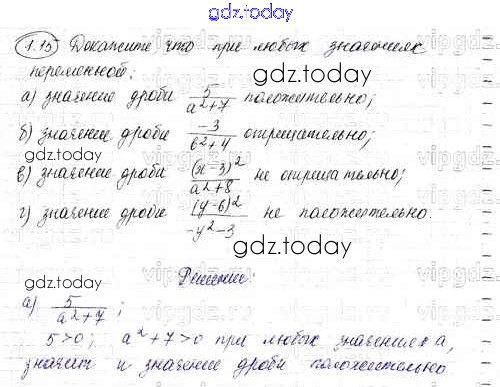 gdz.today
1.15 Докажите что при любых значениях
переменной:
gdz.today
а) значение дроби 5/(a²+7) положительно;
б) значение дроби -3/(b²+4) отрицательно;
gdz.today
в) значение дроби (x-3)²/(a²+8) не отрицательно;
г) значение дроби (y-6)²/(-y²-3) не положительно.
gdz.today
Решение:
gdz.today
а) 5/(a²+7);
5>0; a²+7>0 при любых значениях a,
значит и значение дроби положительно
gdz.today